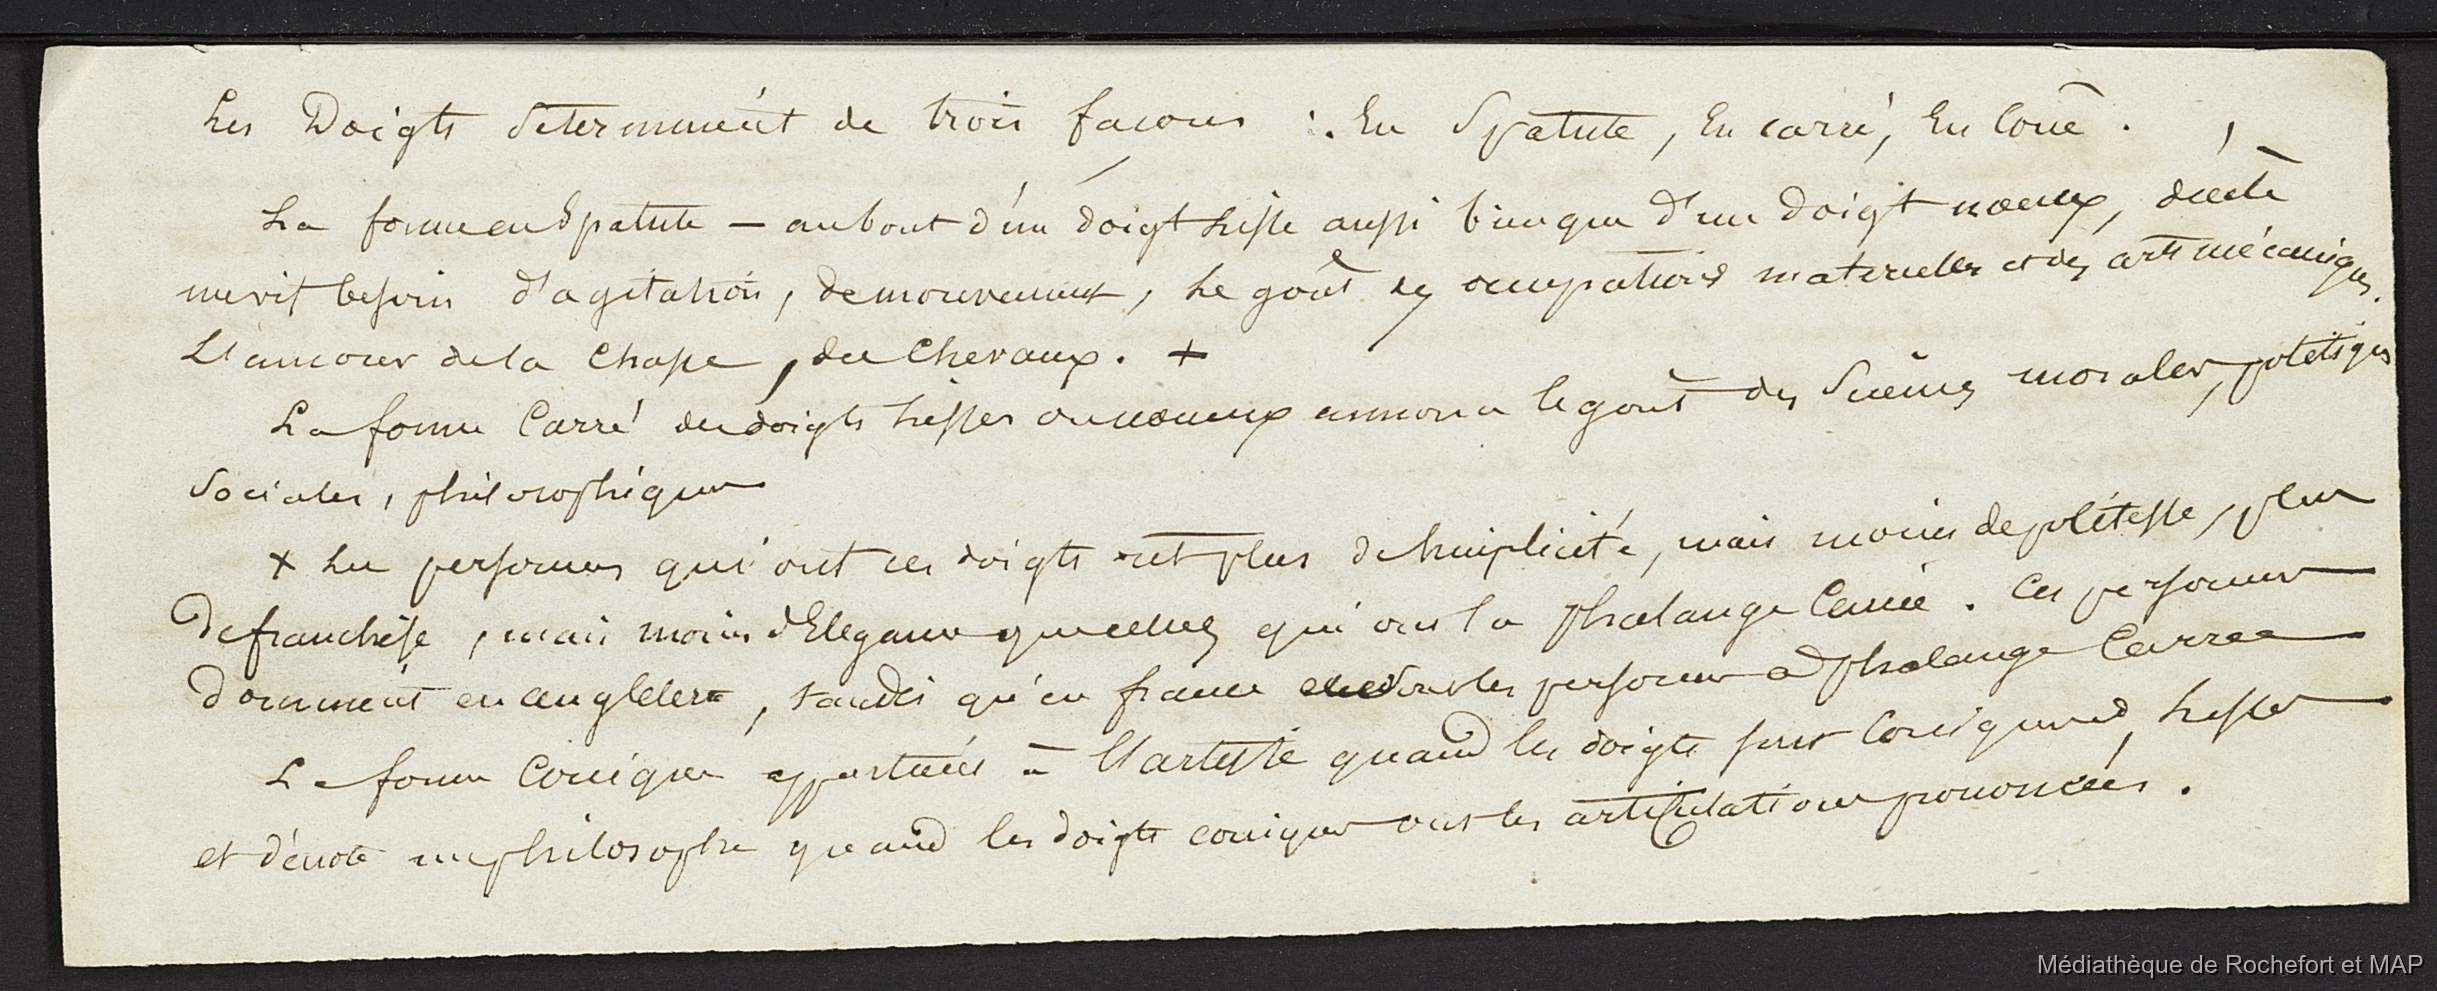 Les Doigts se terminent de trois facons : En Spatule, En carré, En Cone.
La forme en Spatule - au bout d'un doigt lisse aussi bien que d'un doigt noeux, décèle
un vif besoin d'agitation, de mouvement, le goût des occupations materielles et des arts mécaniques.
L'amour de la chasse, des Chevaux. +
La forme Carré des doigts lisses ou noeux annonce le goût des Sciences morales, politiques
Sociales, philosophiques
+ Les personnes qui ont ces doigts ont plus de simplicité, mais moins de politesse, plus
De franchise, mais moins d'Elegance que celles qui ont la phalange Carrée. Ces personnes
Dominent en angleterre, tandis qu'en france les personnes a phalange Carree
La forme Conique appartient à l'artiste quand les doigts sont Coniques, lisses
et dénote un philosophe quand les doigts coniques ont les articulations prononcées.
Médiathèque de Rochefort et MAP